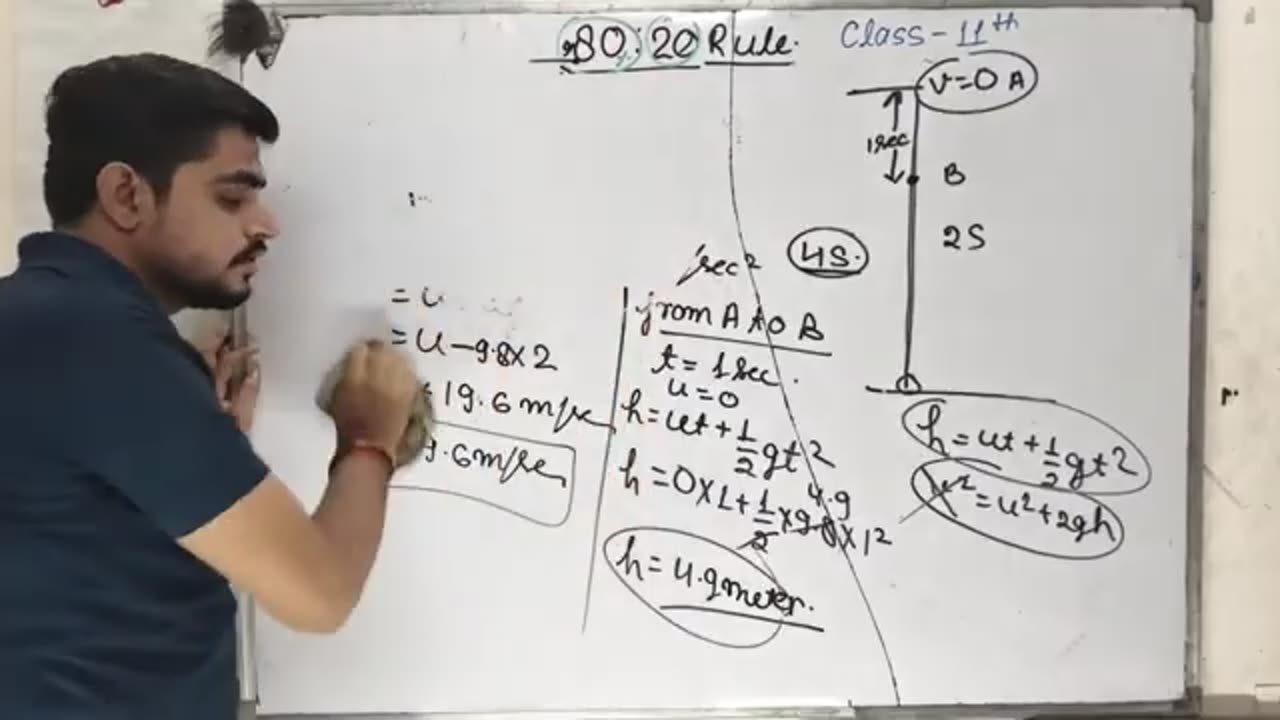 80:20 Rule.
Class-11th
v=0 A
1sec
B
2S
4S.
/sec2
= u
= u-9.8×2
19.6m/sec
9.6m/sec
from A to B
t=1sec.
u=0
h=ut+1/2gt2
h=0×1+1/2×9.8×12
4.9
h=4.9meter.
h=ut+1/2gt2
v2=u2+2gh